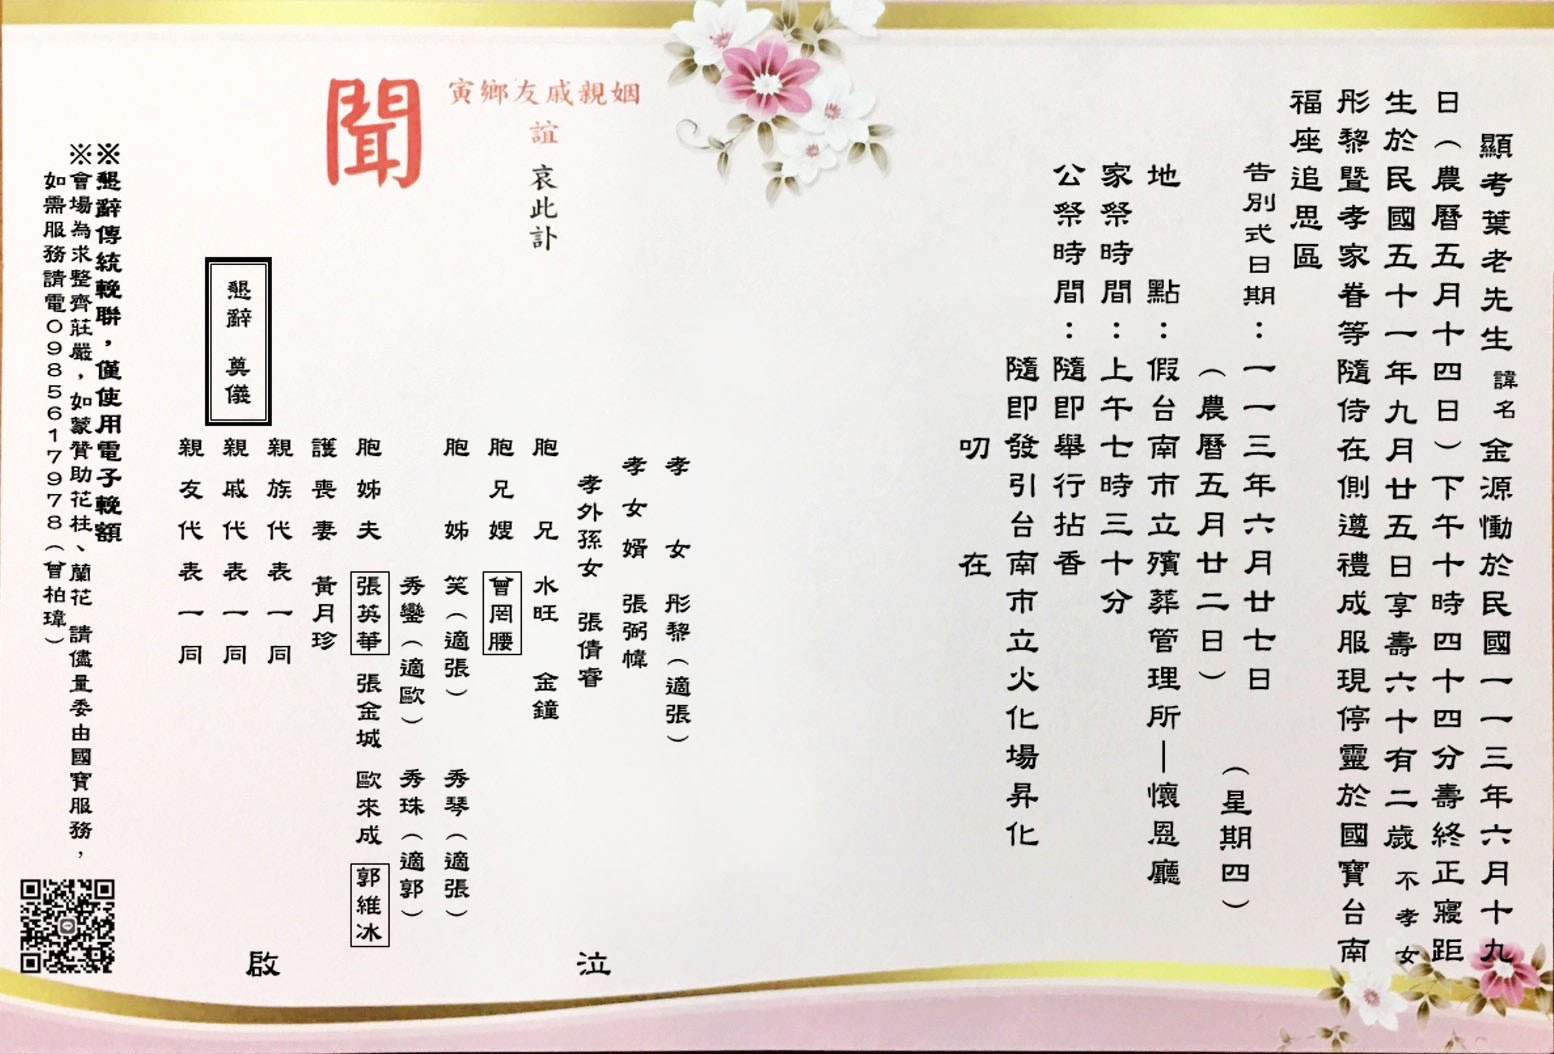 顯考葉老先生諱名金源慟於民國一一三年六月十九
日（農曆五月十四日）下午十時四十四分壽終正寢距
生於民國五十一年九月廿五日享壽六十有二歲不孝女
彤黎暨孝家眷等隨侍在側遵禮成服現停靈於國寶台南
福座追思區
告別式日期：一一三年六月廿七日
（農曆五月廿二日）
（星期四）
地點：假台南市立殯葬管理所—懷恩廳
家祭時間：上午七時三十分
公祭時間：隨即舉行拈香
隨即發引台南市立火化場昇化
叨在
姻親戚友鄉寅
誼
哀此訃
聞
孝女 彤黎（適張）
孝女婿 張弼幃
孝外孫女 張倩睿
胞兄 水旺 金鐘
胞兄嫂 曾罔腰
胞姊 笑（適張） 秀琴（適張）
秀鑾（適歐） 秀珠（適郭）
胞姊夫 張英華 張金城 歐來成 郭維冰
護喪妻 黃月珍
親族代表一同
親戚代表一同
親友代表一同
泣
啟
懇辭 奠儀
※懇辭傳統輓聯，僅使用電子輓額
※會場為求整齊莊嚴，如蒙贊助花柱、蘭花 請儘量委由國寶服務，
如需服務請電0985617978（曾柏瑋）